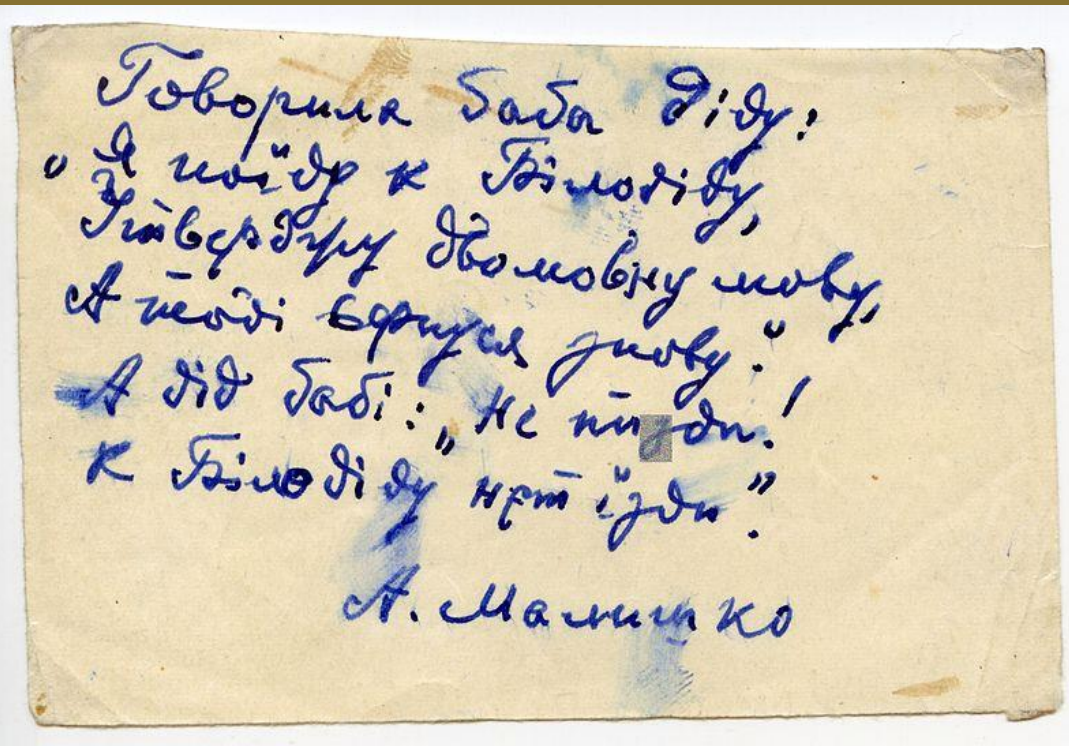 Говорила баба діду:
"Я поїду к Білодіду,
Ізтвержу двомовну мову,
А тоді вернуся знову."
А дід бабі: „Не пизди!
К Білодіду нєт їзди".
А. Малишко